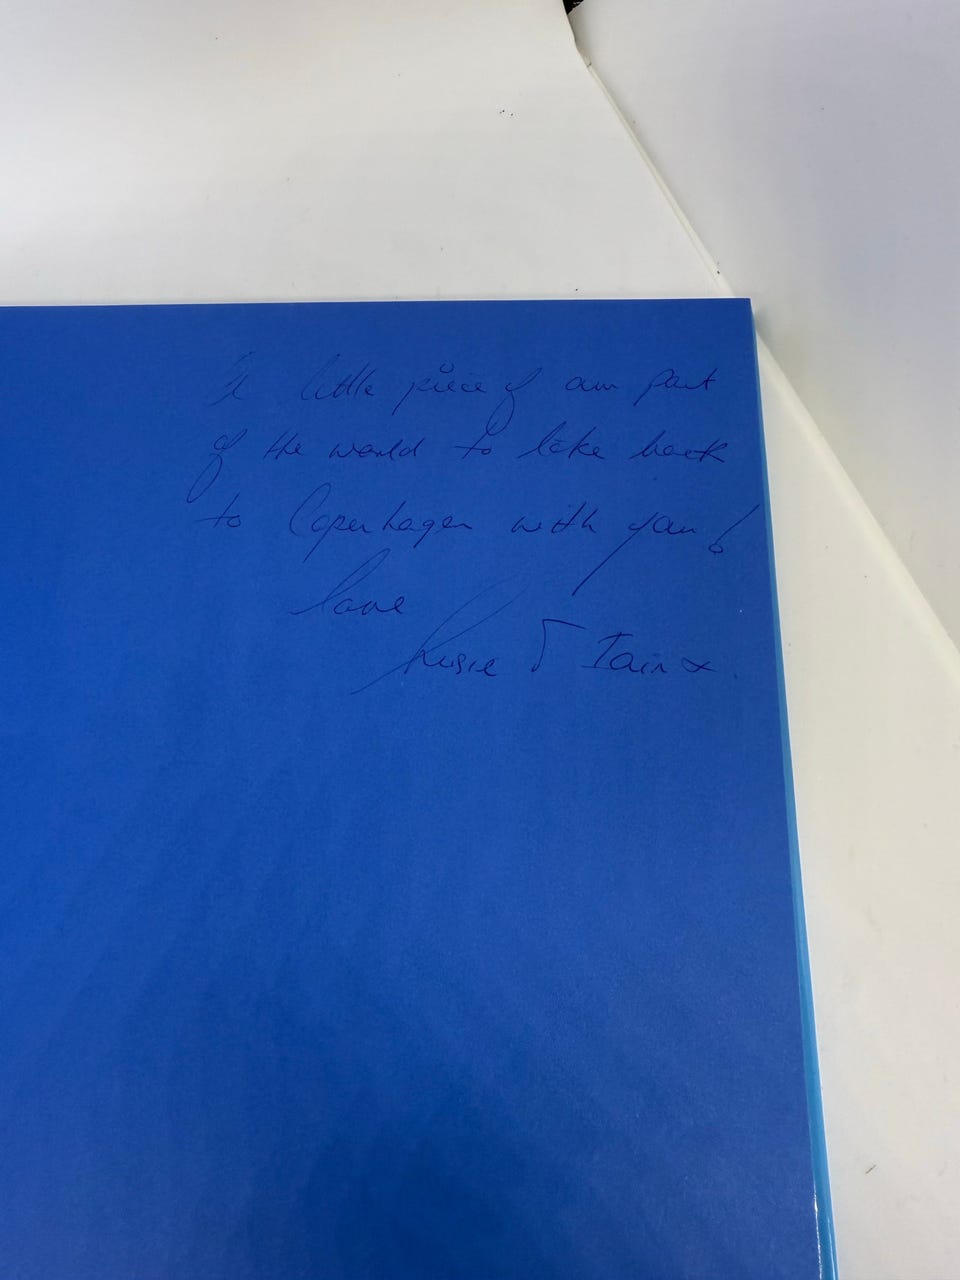 A little piece of our part
of the world to take back
to Copenhagen with you!
Love
& Iain x